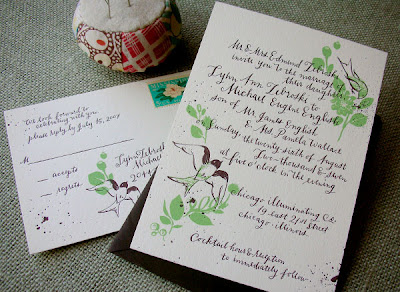 We look forward to
celebrating with you.
please reply by July 15, 2007
accepts
regrets
Lynn Zebroski
Michael
Mr & Mrs Edmund Zebroski
invite you to the marriage of
their daughter
Lynn Ann Zebroski to
Michael Eugene English
son of Mr James English
& Ms Pamela Wallace
Sunday, the twenty sixth of August
Two-thousand & seven
at five o'clock in the evening
Chicago Illuminating Co
19 East 21st Street
Chicago, Illinois
Cocktail hour & Reception
to immediately follow